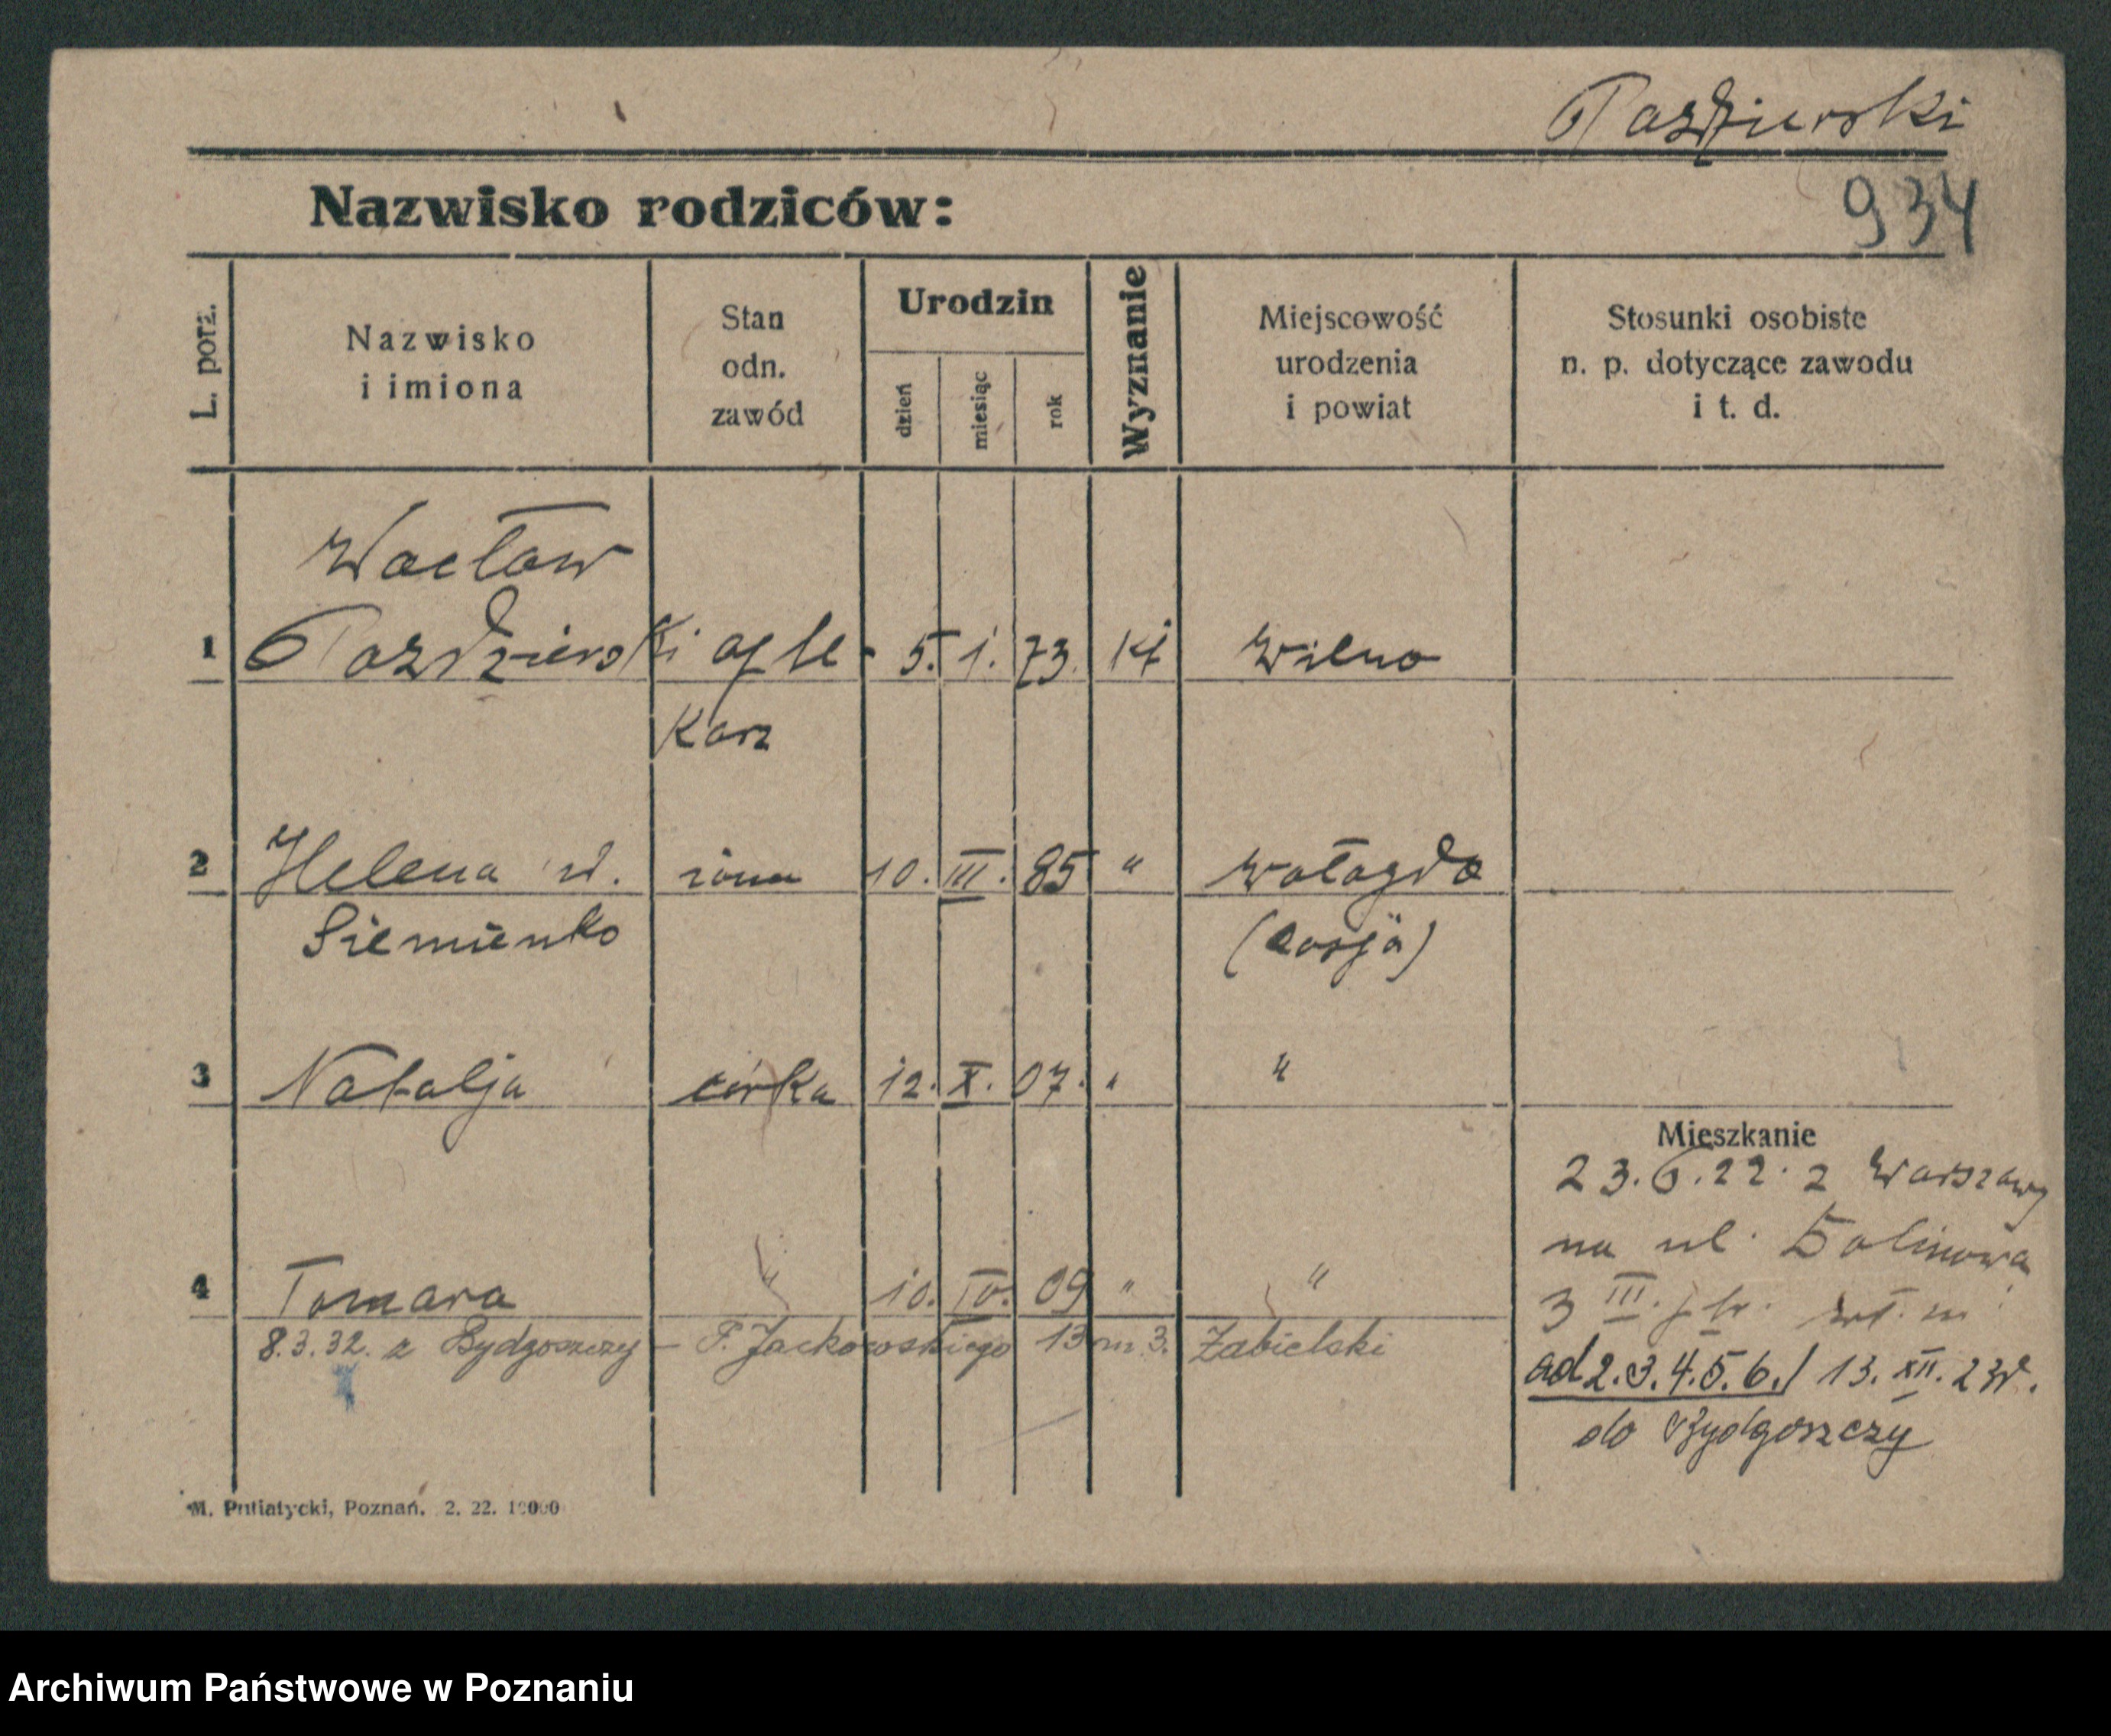 Paździerski
Nazwisko rodziców:
934
L. porz.
Nazwisko
i imiona
Stan
odn.
zawód
Urodzin
dzień
miesiąc
rok
Wyznanie
Miejscowość
urodzenia
i powiat
Stosunki osobiste
n. p. dotyczące zawodu
i t. d.
Wacław
1 Paździerski apte- 5. 1. 73. kt Wilno
karz
2 Helena ur. żona 10. III. 85 " Wołogda
Siemienko (Rosja)
3 Natalja córka 12. X. 07. " "
Mieszkanie
23.6.22. z Warszawy
na ul.
3 III. ptr. wł. m.
4 Tamara " 10. IV. 09 " "
8.3.32. z Bydgoszczy – P. Jackowskiego 13 m. 3. Zabielski
ad 2.3.4.5.6./ 13. XII. 23r.
do Bydgoszczy
M. Putiatycki, Poznań. 2. 22. 10000
Archiwum Państwowe w Poznaniu